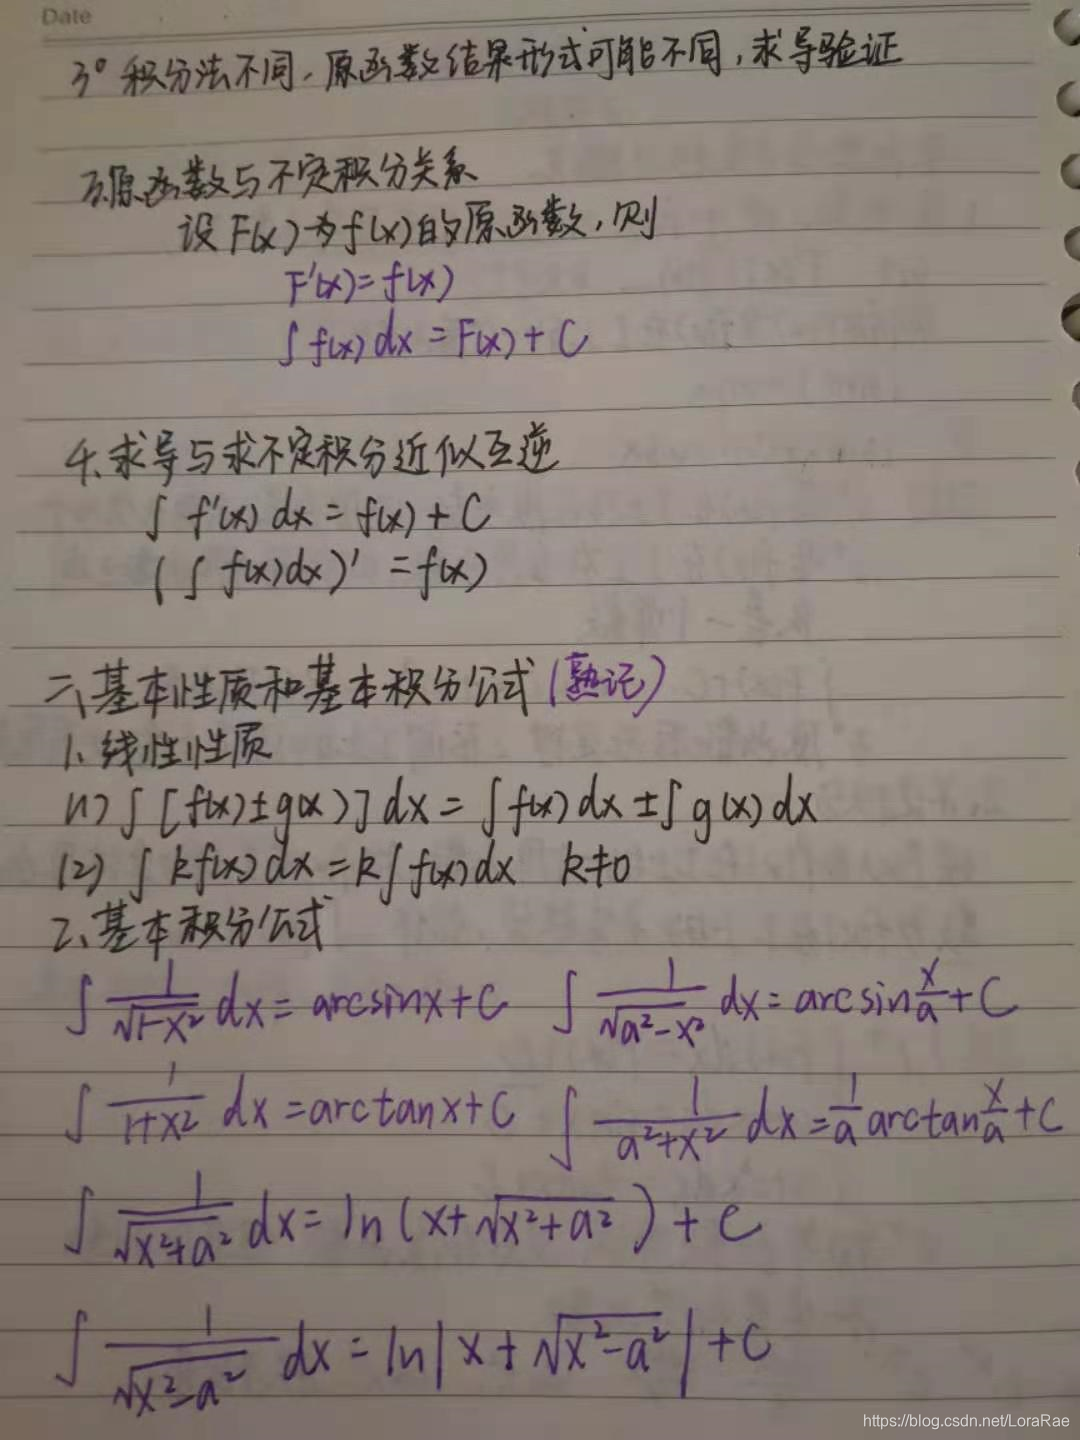 Date
3° 积分法不同，原函数结果形式可能不同，求导验证
3.原函数与不定积分关系
设F(x)为f(x)的原函数，则
F'(x)=f(x)
∫f(x)dx=F(x)+C
4.求导与求不定积分近似互逆
∫f'(x)dx=f(x)+C
(∫f(x)dx)'=f(x)
二、基本性质和基本积分公式(熟记)
1、线性性质
(1) ∫[f(x)±g(x)]dx=∫f(x)dx±∫g(x)dx
(2) ∫kf(x)dx=k∫f(x)dx k≠0
2、基本积分公式
∫1/√(1-x²) dx=arcsinx+C ∫1/√(a²-x²) dx=arcsin x/a+C
∫1/(1+x²) dx=arctanx+C ∫1/(a²+x²) dx=1/a arctan x/a+C
∫1/√(x²+a²) dx=ln(x+√(x²+a²))+C
∫1/√(x²-a²) dx=ln|x+√(x²-a²)|+C
https://blog.csdn.net/LoraRae